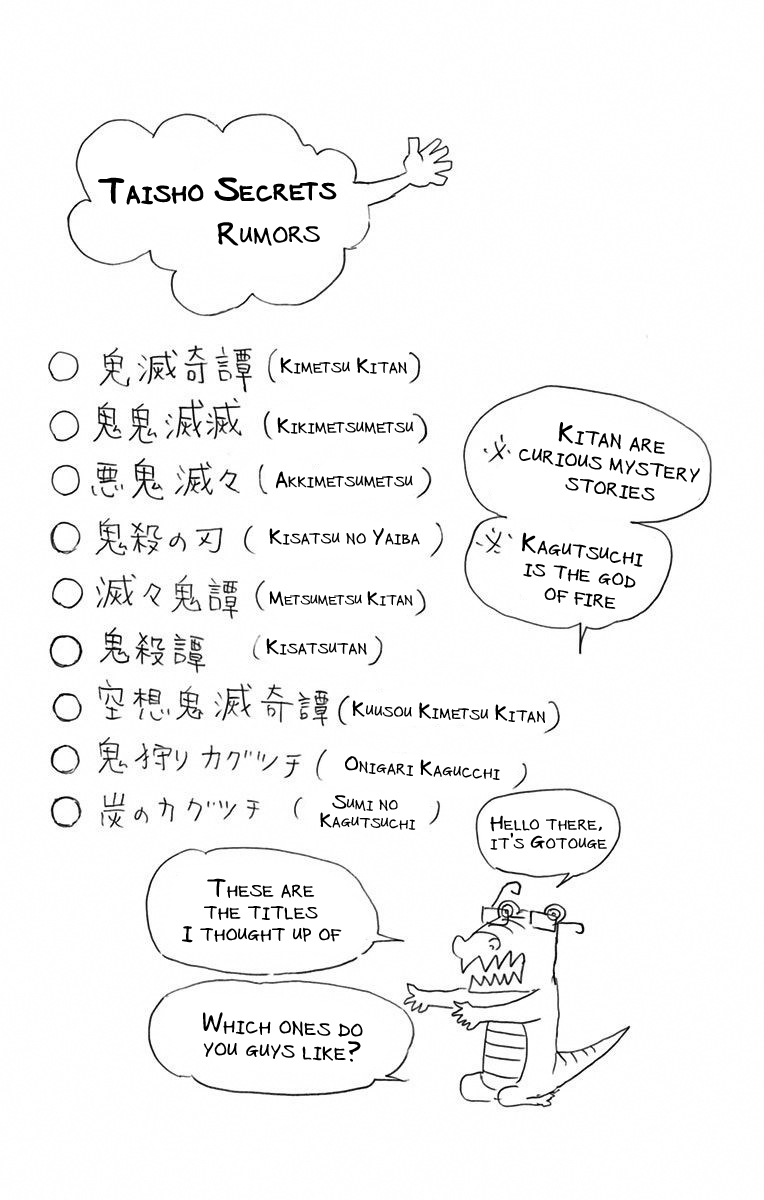 TAISHO SECRETS
RUMORS
○ 鬼滅奇譚 (KIMETSU KITAN)
○ 鬼鬼滅滅 (KIKIMETSUMETSU)
○ 悪鬼滅々 (AKKIMETSUMETSU)
○ 鬼殺の刃 (KISATSU NO YAIBA)
○ 滅々鬼譚 (METSUMETSU KITAN)
○ 鬼殺譚 (KISATSUTAN)
○ 空想鬼滅奇譚 (KUUSOU KIMETSU KITAN)
○ 鬼狩りカグツチ (ONIGARI KAGUCCHI)
○ 炭のカグツチ (SUMI NO
KAGUTSUCHI)
KITAN ARE
※ CURIOUS MYSTERY
STORIES
※ KAGUTSUCHI
IS THE GOD
OF FIRE
HELLO THERE,
IT'S GOTOUGE
THESE ARE
THE TITLES
I THOUGHT UP OF
WHICH ONES DO
YOU GUYS LIKE?